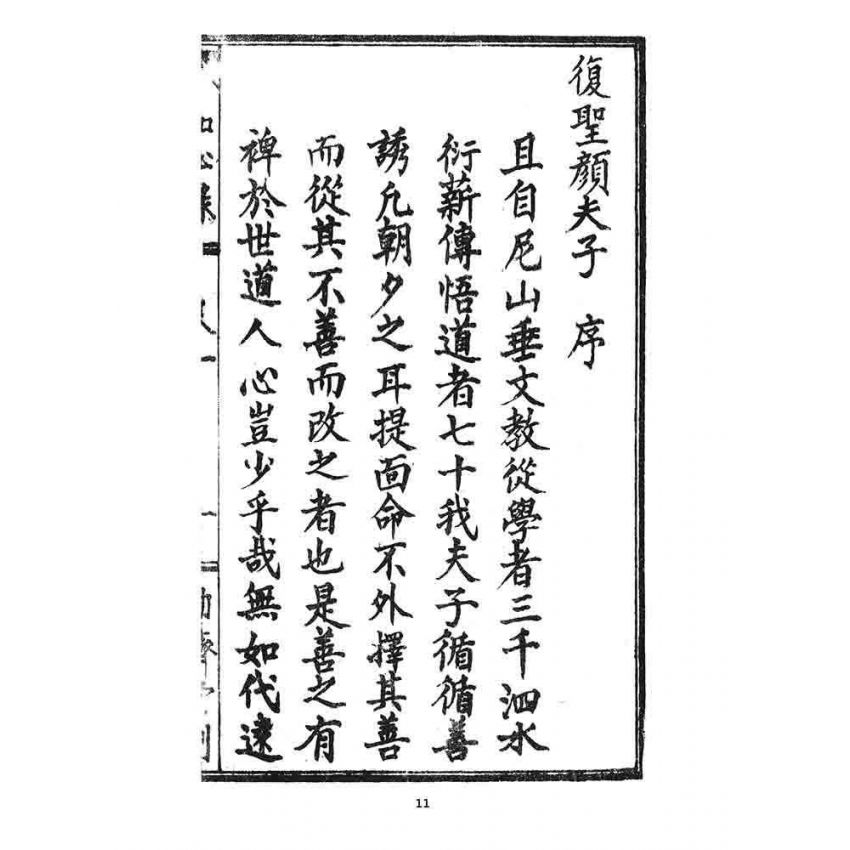 復聖顏夫子 序
且自尼山垂文教從學者三千泗水
衍薪傳悟道者七十我夫子循循善
誘凡朝夕之耳提面命不外擇其善
而從其不善而改之者也是善之有
裨於世道人心豈少乎哉無如代遠
11